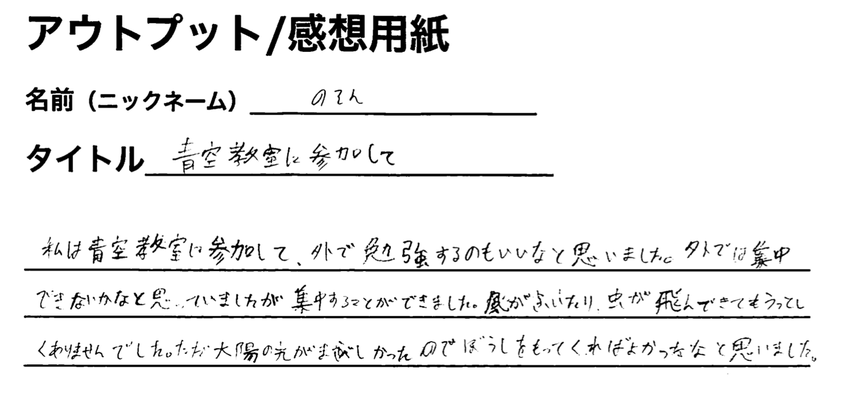 アウトプット/感想用紙
名前（ニックネーム） のてん
タイトル 青空教室に参加して
私は青空教室に参加して、外で勉強するのもいいなと思いました。外では集中
できないかなと思っていましたが集中することができました。風がふいたり、虫が飛んできてもうっとし
くありませんでした。ただ太陽の光がまぶしかったのでぼうしをもってくればよかったなと思いました。